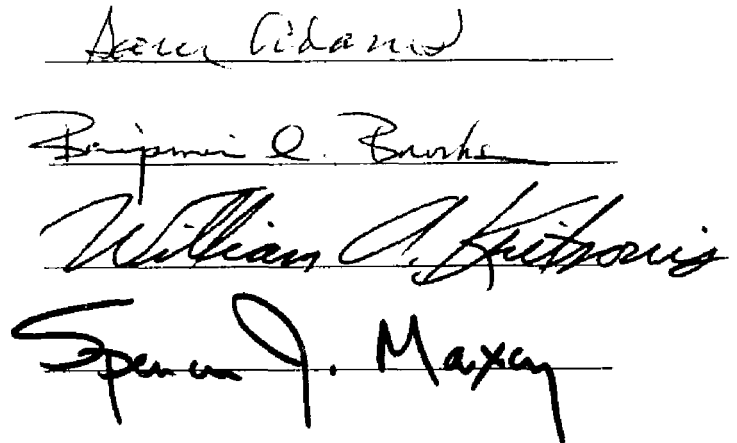 Sam Adams
Benjamin A. Brooks
William A. Kritsonis
Spencer J. Maxcy